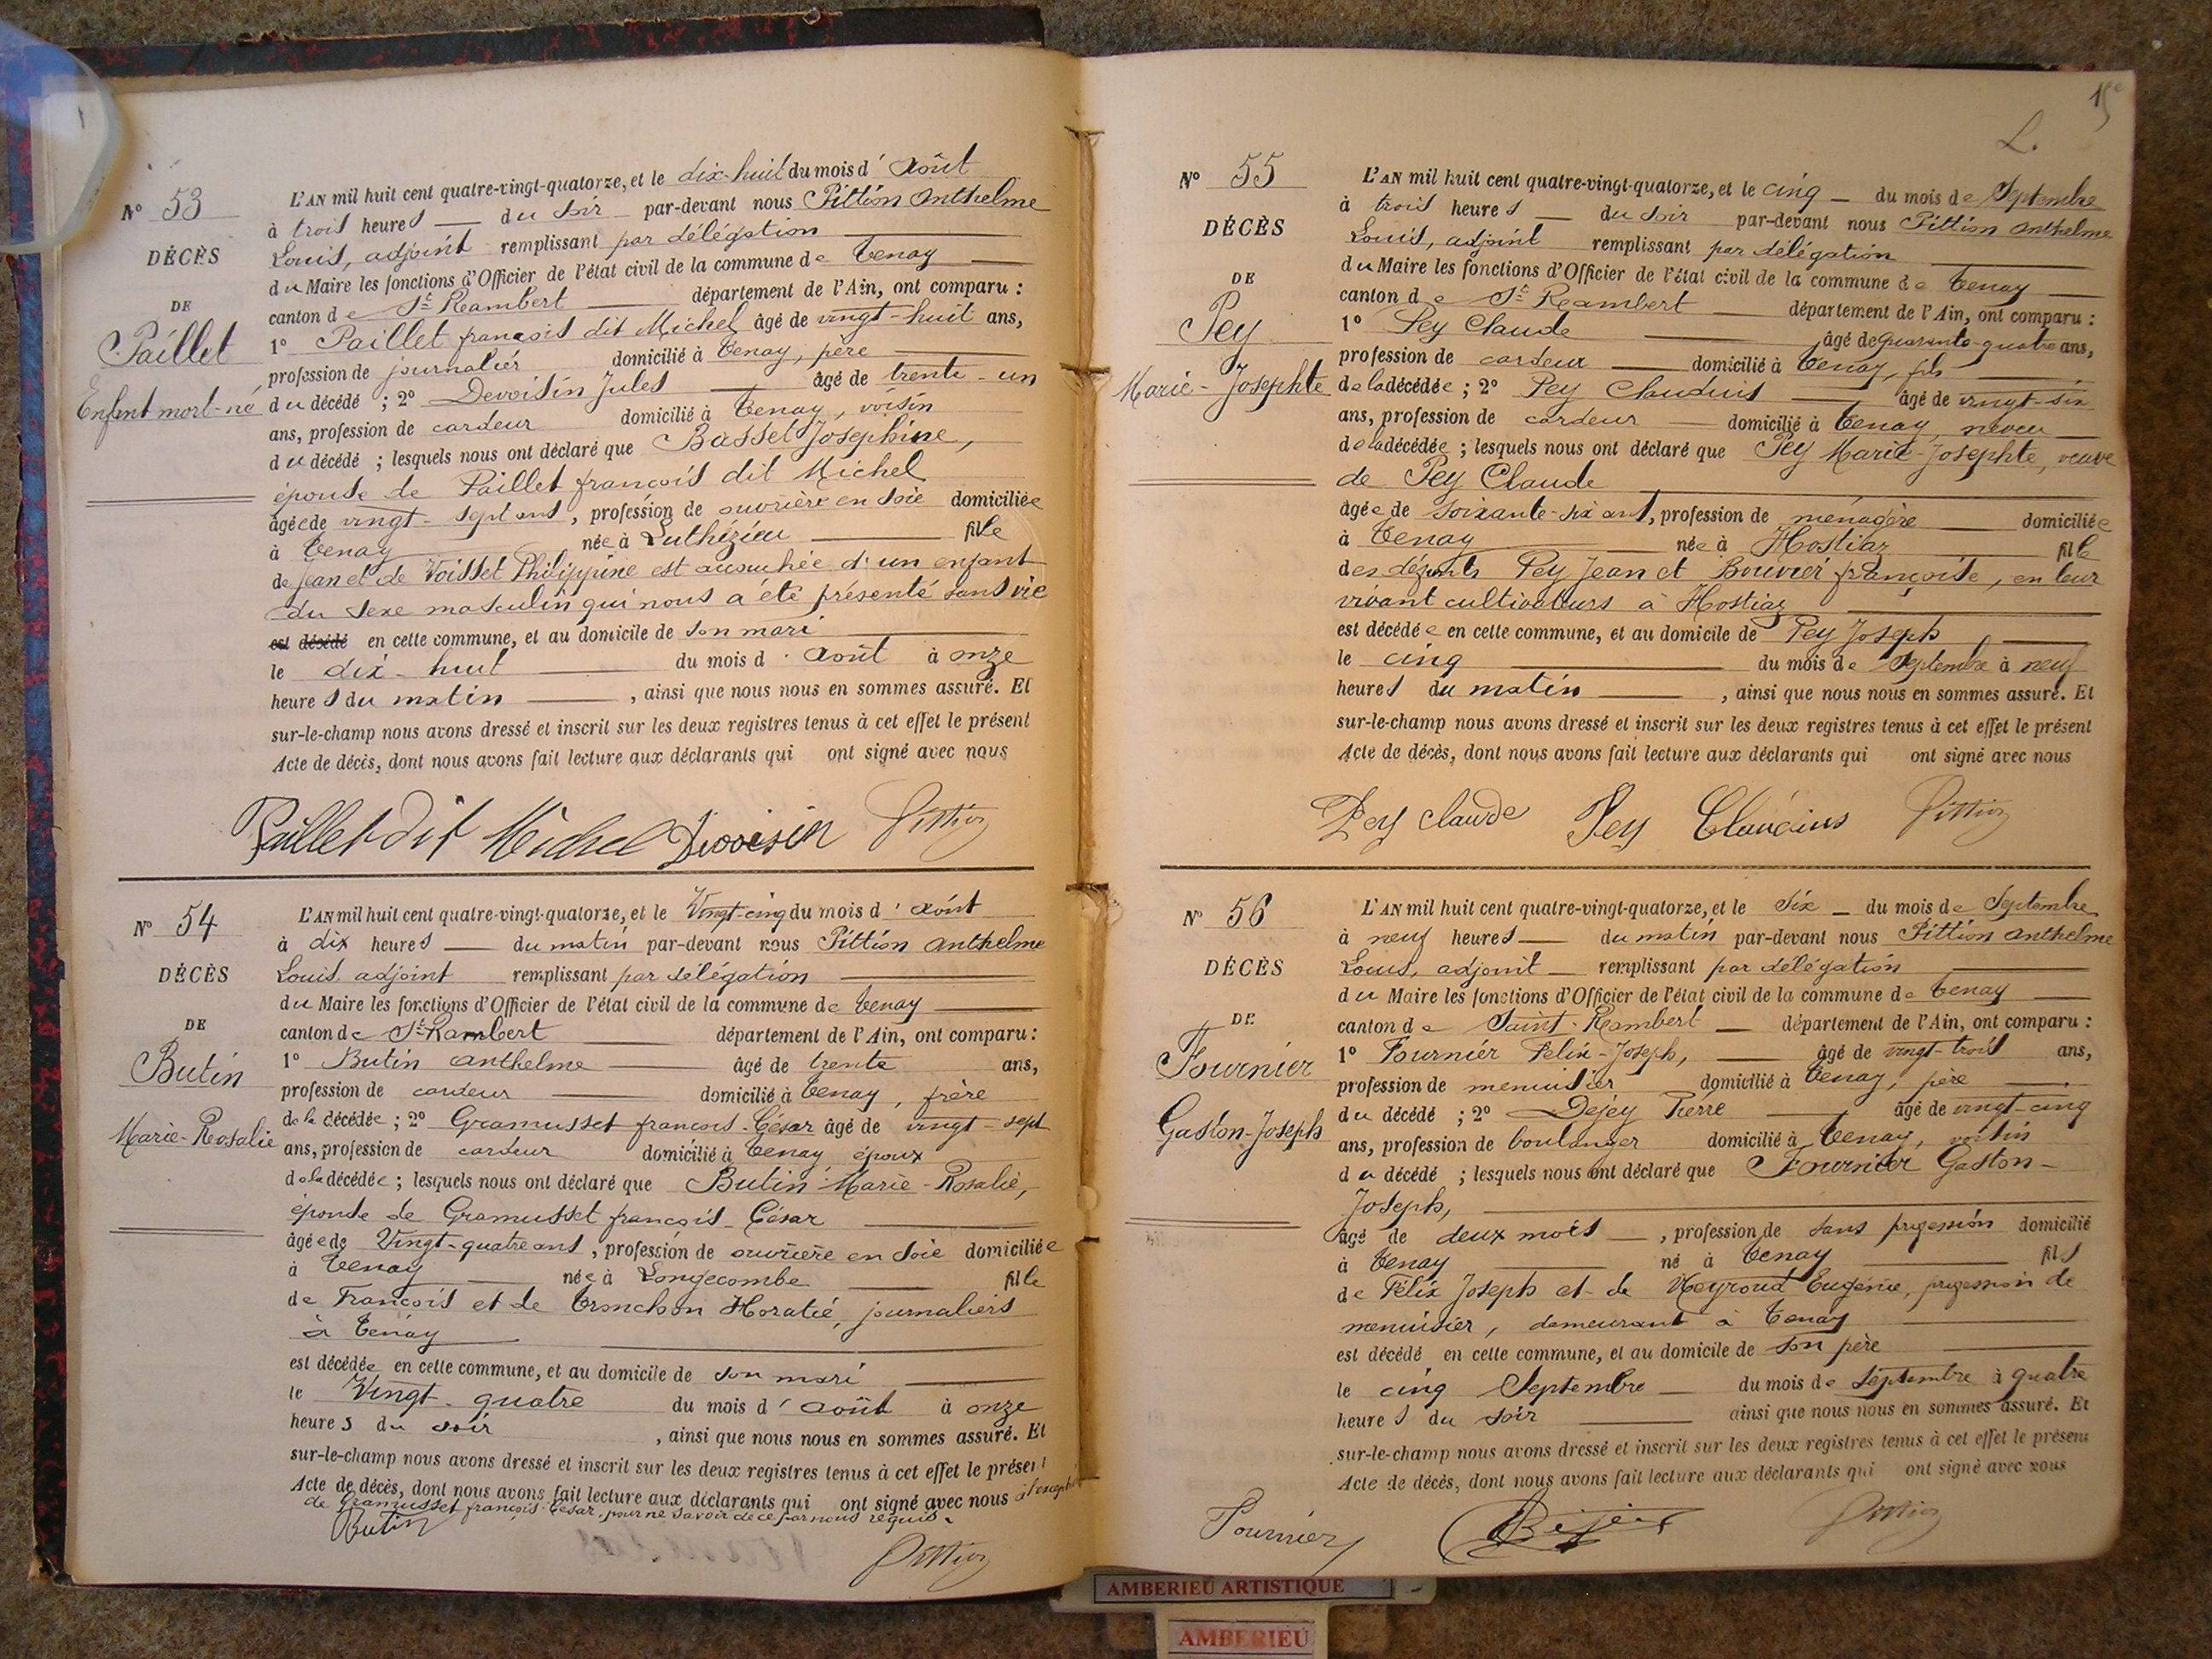 N° 53
DÉCÈS
DE
Paillet
Enfant mort-né
L'AN mil huit cent quatre-vingt-quatorze, et le dix-huit du mois d'Août
à trois heures du soir par-devant nous Pittion Anthelme
Louis, adjoint remplissant par délégation
du Maire les fonctions d'Officier de l'état civil de la commune de Tenay
canton de St Rambert département de l'Ain, ont comparu :
1° Paillet françois dit Michel âgé de vingt-huit ans,
profession de journalier domicilié à Tenay, père
du décédé ; 2° Devoisin Jules âgé de trente-un
ans, profession de cardeur domicilié à Tenay, voisin
du décédé ; lesquels nous ont déclaré que Basset Joséphine,
épouse de Paillet françois dit Michel
âgée de vingt-sept ans, profession de ouvrière en soie domiciliée
à Tenay née à Luthézieu fille
de Jean et de Voisset Philippine est accouchée d'un enfant
du sexe masculin qui nous a été présenté sans vie
est décédé en cette commune, et au domicile de son mari
le dix-huit du mois d'Août à onze
heures du matin, ainsi que nous nous en sommes assuré. Et
sur-le-champ nous avons dressé et inscrit sur les deux registres tenus à cet effet le présent
Acte de décès, dont nous avons fait lecture aux déclarants qui ont signé avec nous
Paillet dit Michel Devoisin Pittion
N° 54
DÉCÈS
DE
Butin
Marie-Rosalie
L'AN mil huit cent quatre-vingt-quatorze, et le Vingt-cinq du mois d'Août
à dix heures du matin par-devant nous Pittion Anthelme
Louis, adjoint remplissant par délégation
du Maire les fonctions d'Officier de l'état civil de la commune de Tenay
canton de St Rambert département de l'Ain, ont comparu :
1° Butin Anthelme âgé de trente ans,
profession de cardeur domicilié à Tenay, frère
de la décédée ; 2° Gramusset françois-César âgé de vingt-sept
ans, profession de cardeur domicilié à Tenay époux
de la décédée ; lesquels nous ont déclaré que Butin Marie-Rosalie,
épouse de Gramusset françois-César
âgée de Vingt-quatre ans, profession de ouvrière en soie domiciliée
à Tenay née à Longecombe fille
de François et de Tronchon Horatie, journaliers
à Tenay
est décédée en cette commune, et au domicile de son mari
le Vingt-quatre du mois d'Août à onze
heures du soir, ainsi que nous nous en sommes assuré. Et
sur-le-champ nous avons dressé et inscrit sur les deux registres tenus à cet effet le présent
Acte de décès, dont nous avons fait lecture aux déclarants qui ont signé avec nous
de Gramusset françois-César, pour ne savoir de ce par nous requis.
Butin Pittion
L.
N° 55
DÉCÈS
DE
Pey
Marie-Josephte
L'AN mil huit cent quatre-vingt-quatorze, et le cinq du mois de Septembre
à trois heures du soir par-devant nous Pittion Anthelme
Louis, adjoint remplissant par délégation
du Maire les fonctions d'Officier de l'état civil de la commune de Tenay
canton de St Rambert département de l'Ain, ont comparu :
1° Pey Claude âgé de quarante-quatre ans,
profession de cardeur domicilié à Tenay, fils
de la décédée ; 2° Pey Claudius âgé de vingt-six
ans, profession de cardeur domicilié à Tenay, neveu
de la décédée ; lesquels nous ont déclaré que Pey Marie-Josephte, veuve
de Pey Claude
âgée de soixante-six ans, profession de ménagère domiciliée
à Tenay née à Hostiaz fille
des défunts Pey Jean et Bouvier françoise, en leur
vivant cultivateurs à Hostiaz
est décédée en cette commune, et au domicile de Pey Joseph
le cinq du mois de Septembre à neuf
heures du matin, ainsi que nous nous en sommes assuré. Et
sur-le-champ nous avons dressé et inscrit sur les deux registres tenus à cet effet le présent
Acte de décès, dont nous avons fait lecture aux déclarants qui ont signé avec nous
Pey Claude Pey Claudius Pittion
N° 56
DÉCÈS
DE
Fournier
Gaston-Joseph
L'AN mil huit cent quatre-vingt-quatorze, et le six du mois de Septembre
à neuf heures du matin par-devant nous Pittion Anthelme
Louis, adjoint remplissant par délégation
du Maire les fonctions d'Officier de l'état civil de la commune de Tenay
canton de Saint-Rambert département de l'Ain, ont comparu :
1° Fournier Felix-Joseph, âgé de vingt-trois ans,
profession de menuisier domicilié à Tenay, père
du décédé ; 2° Dejey Pierre âgé de vingt-cinq
ans, profession de boulanger domicilié à Tenay, voisin
du décédé ; lesquels nous ont déclaré que Fournier Gaston-
Joseph,
âgé de deux mois, profession de sans profession domicilié
à Tenay né à Tenay fils
de Félix Joseph et de Neyroud Eugénie, profession de
menuisier, demeurant à Tenay
est décédé en cette commune, et au domicile de son père
le cinq Septembre du mois de Septembre à quatre
heures du soir ainsi que nous nous en sommes assuré. Et
sur-le-champ nous avons dressé et inscrit sur les deux registres tenus à cet effet le présent
Acte de décès, dont nous avons fait lecture aux déclarants qui ont signé avec nous
Fournier Pittion
AMBERIEU ARTISTIQUE
AMBERIEU